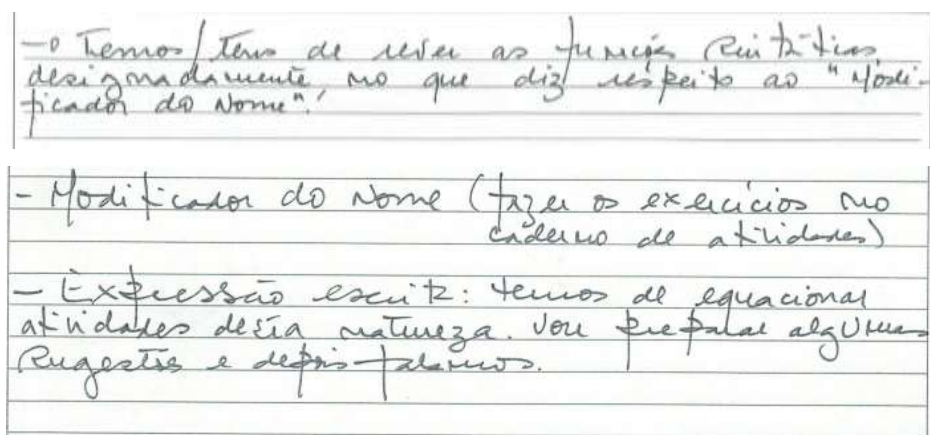 → Temos/tens de rever as funções sintáticas
designadamente no que diz respeito ao "Modi-
ficador do Nome".
- Modificador do Nome (fazer os exercícios no
caderno de atividades)
- Expressão escrita: temos de equacionar
atividades desta natureza. Vou preparar algumas
sugestões e depois falamos.